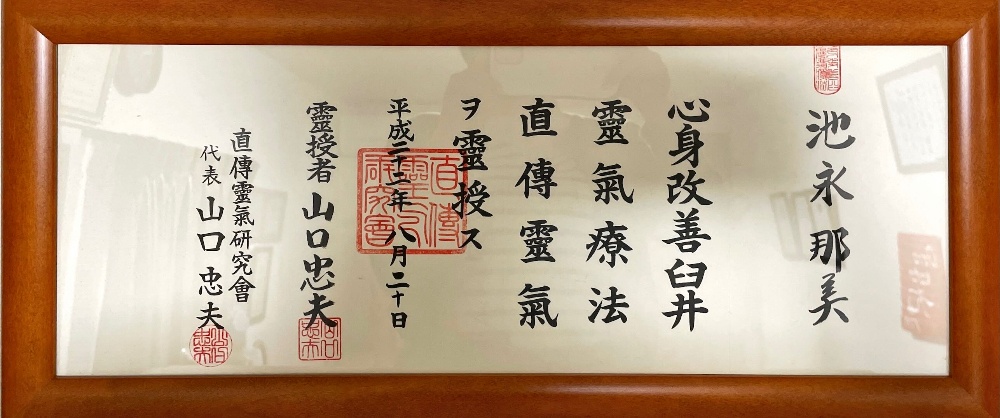 池永那美
心身改善臼井
靈氣療法
直傳靈氣
ヲ靈授ス
平成二十二年八月二十日
靈授者 山口忠夫
直傳靈氣研究會
代表 山口忠夫
直傳靈氣研究會